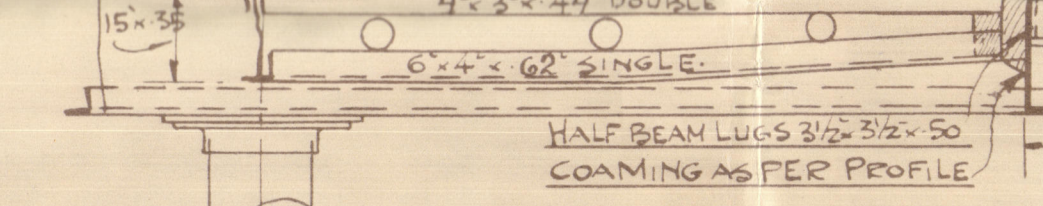 4"x 3"x .44 DOUBLE
15"x .35
6"x 4"x .62" SINGLE.
HALF BEAM LUGS 3½"x 3½"x .50
COAMING AS PER PROFILE